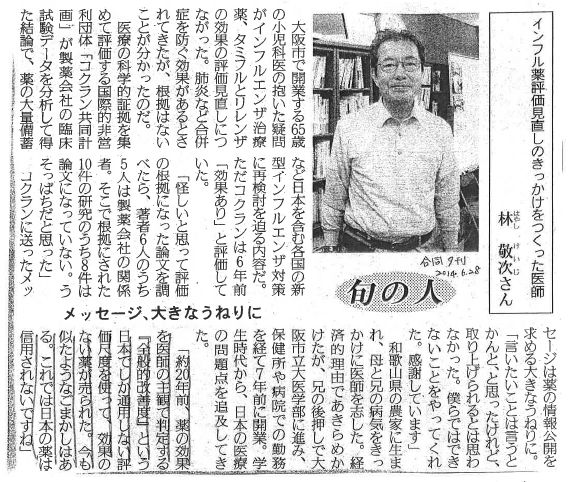 インフル薬評価見直しのきっかけをつくった医師
林 敬次さん
はやし けいじ
合同夕刊
2014.6.28
旬の人
メッセージ、大きなうねりに
大阪市で開業する65歳
の小児科医の抱いた疑問
がインフルエンザ治療
薬、タミフルとリレンザ
の効果の評価見直しにつ
ながった。肺炎など合併
症を防ぐ効果があるとさ
れてきたが、根拠はない
ことが分かったのだ。
医療の科学的証拠を集
めて評価する国際的非営
利団体「コクラン共同計
画」が製薬会社の臨床
試験データを分析して得
た結論で、薬の大量備蓄
など日本を含む各国の新
型インフルエンザ対策
に再検討を迫る内容だ。
ただコクランは6年前
「効果あり」と評価して
いた。
「怪しいと思って評価
の根拠になった論文を調
べたら、著者6人のうち
5人は製薬会社の関係
者。そこで根拠にされた
10件の研究のうち8件は
論文になっていない。う
そっぱちだと思った」
コクランに送ったメッ
セージは薬の情報公開を
求める大きなうねりに。
「言いたいことは言うと
かんと、と思ったけれど、
取り上げられるとは思わ
なかった。僕らではでき
ないことをやってくれ
た。感謝しています」
和歌山県の農家に生ま
れ、母と兄の病気をきっ
かけに医師を志した。経
済的理由であきらめか
けたが、兄の後押しで大
阪市立大医学部に進み、
保健所や病院での勤務
を経て7年前に開業。学
生時代から、日本の医療
の問題点を追及してき
た。
「約20年前、薬の効果
を医師の主観で判定する
『全般的改善度』という
日本でしか通用しない評
価尺度を使って、効果の
ない薬が売られた。今も
似たようなごまかしはあ
る。これでは日本の薬は
信用されないですね」